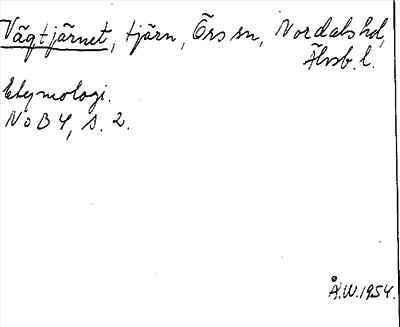 Vägtjärnet, tjärn, Örs sn, Nordals hd,
Älvsb. l.
Etymologi.
NoB 4, s. 2.
Å.W.1954.